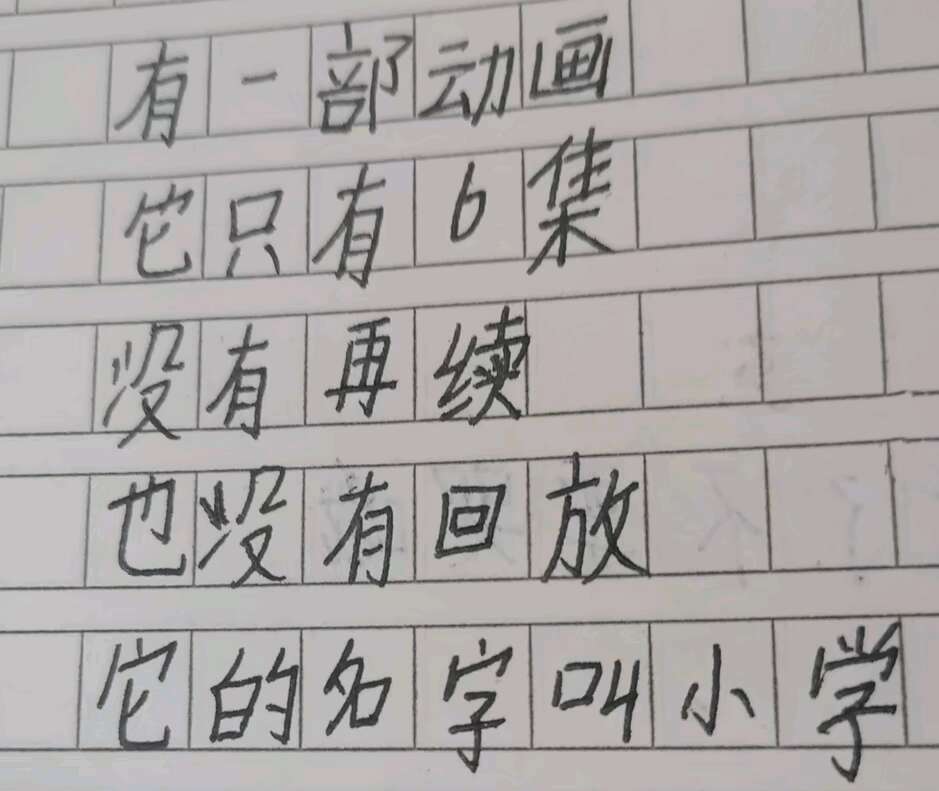 有一部动画
它只有6集
没有再续
也没有回放
它的名字叫小学